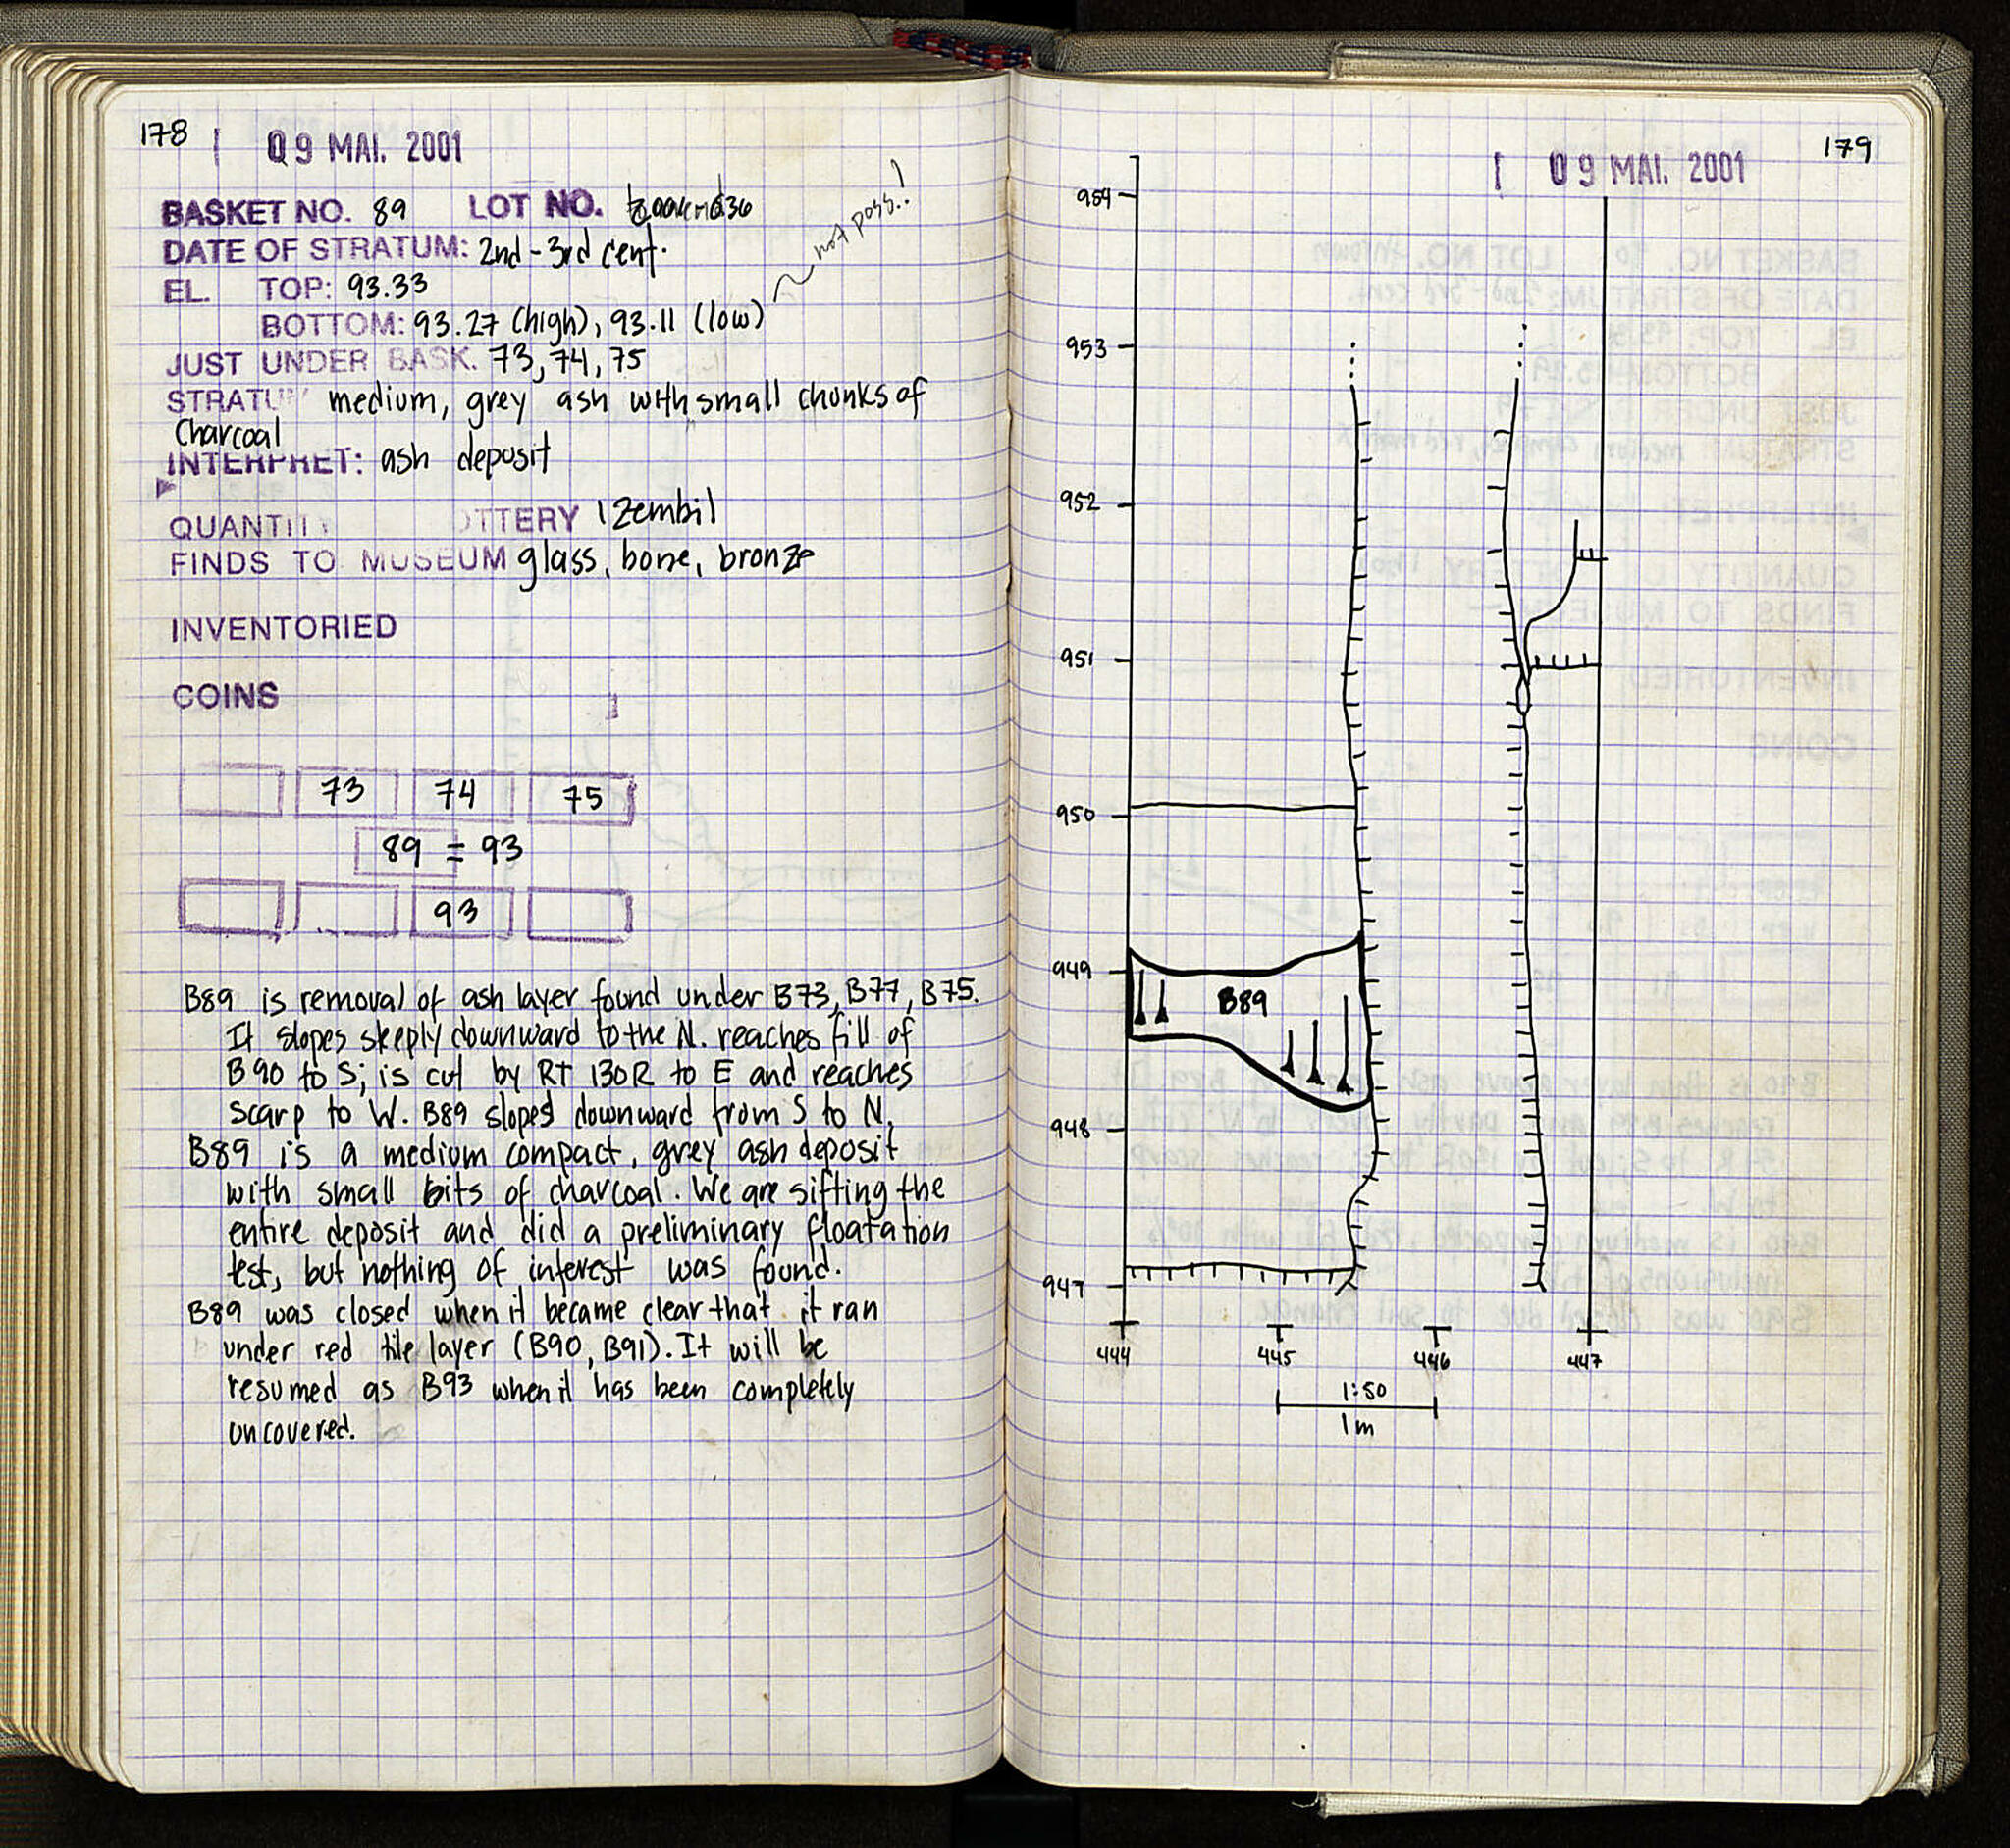 178 09 MAI. 2001
BASKET NO. 89 LOT NO.
DATE OF STRATUM: 2nd-3rd cent.
not poss.!
EL. TOP: 93.33
BOTTOM: 93.27 (high), 93.11 (low)
JUST UNDER BASK. 73, 74, 75
STRATU medium, grey ash with small chunks of
charcoal
INTERPRET: ash deposit
QUANTIT OTTERY 1 Zembil
FINDS TO MUSEUM glass, bone, bronze
INVENTORIED
COINS
73 74 75
89 = 93
93
B89 is removal of ash layer found under B73, B77, B75.
It slopes steeply downward to the N. reaches fill of
B90 to S; is cut by RT 130R to E and reaches
scarp to W. B89 slopes downward from S to N.
B89 is a medium compact, grey ash deposit
with small bits of charcoal. We are sifting the
entire deposit and did a preliminary floatation
test, but nothing of interest was found.
B89 was closed when it became clear that it ran
under red tile layer (B90, B91). It will be
resumed as B93 when it has been completely
uncovered.
179
09 MAI. 2001
954
953
952
951
950
949
B89
948
947
444 445 446 447
1:50
1m